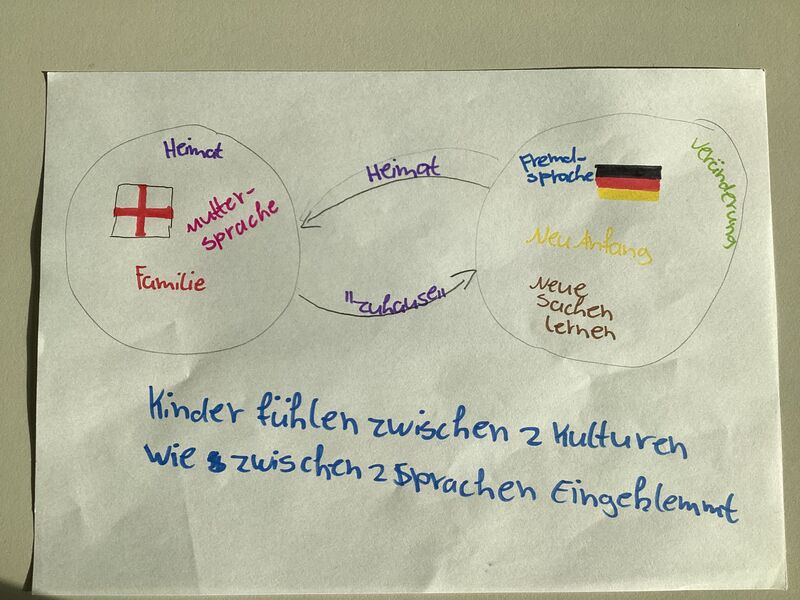 Heimat
Mutter-
sprache
Familie
Heimat
"Zuhausen"
Fremd-
sprache
Veränderung
Neu Anfang
Neue
Sachen
lernen
Kinder fühlen zwischen 2 Kulturen
wie zwischen 2 Sprachen Eingeklemmt